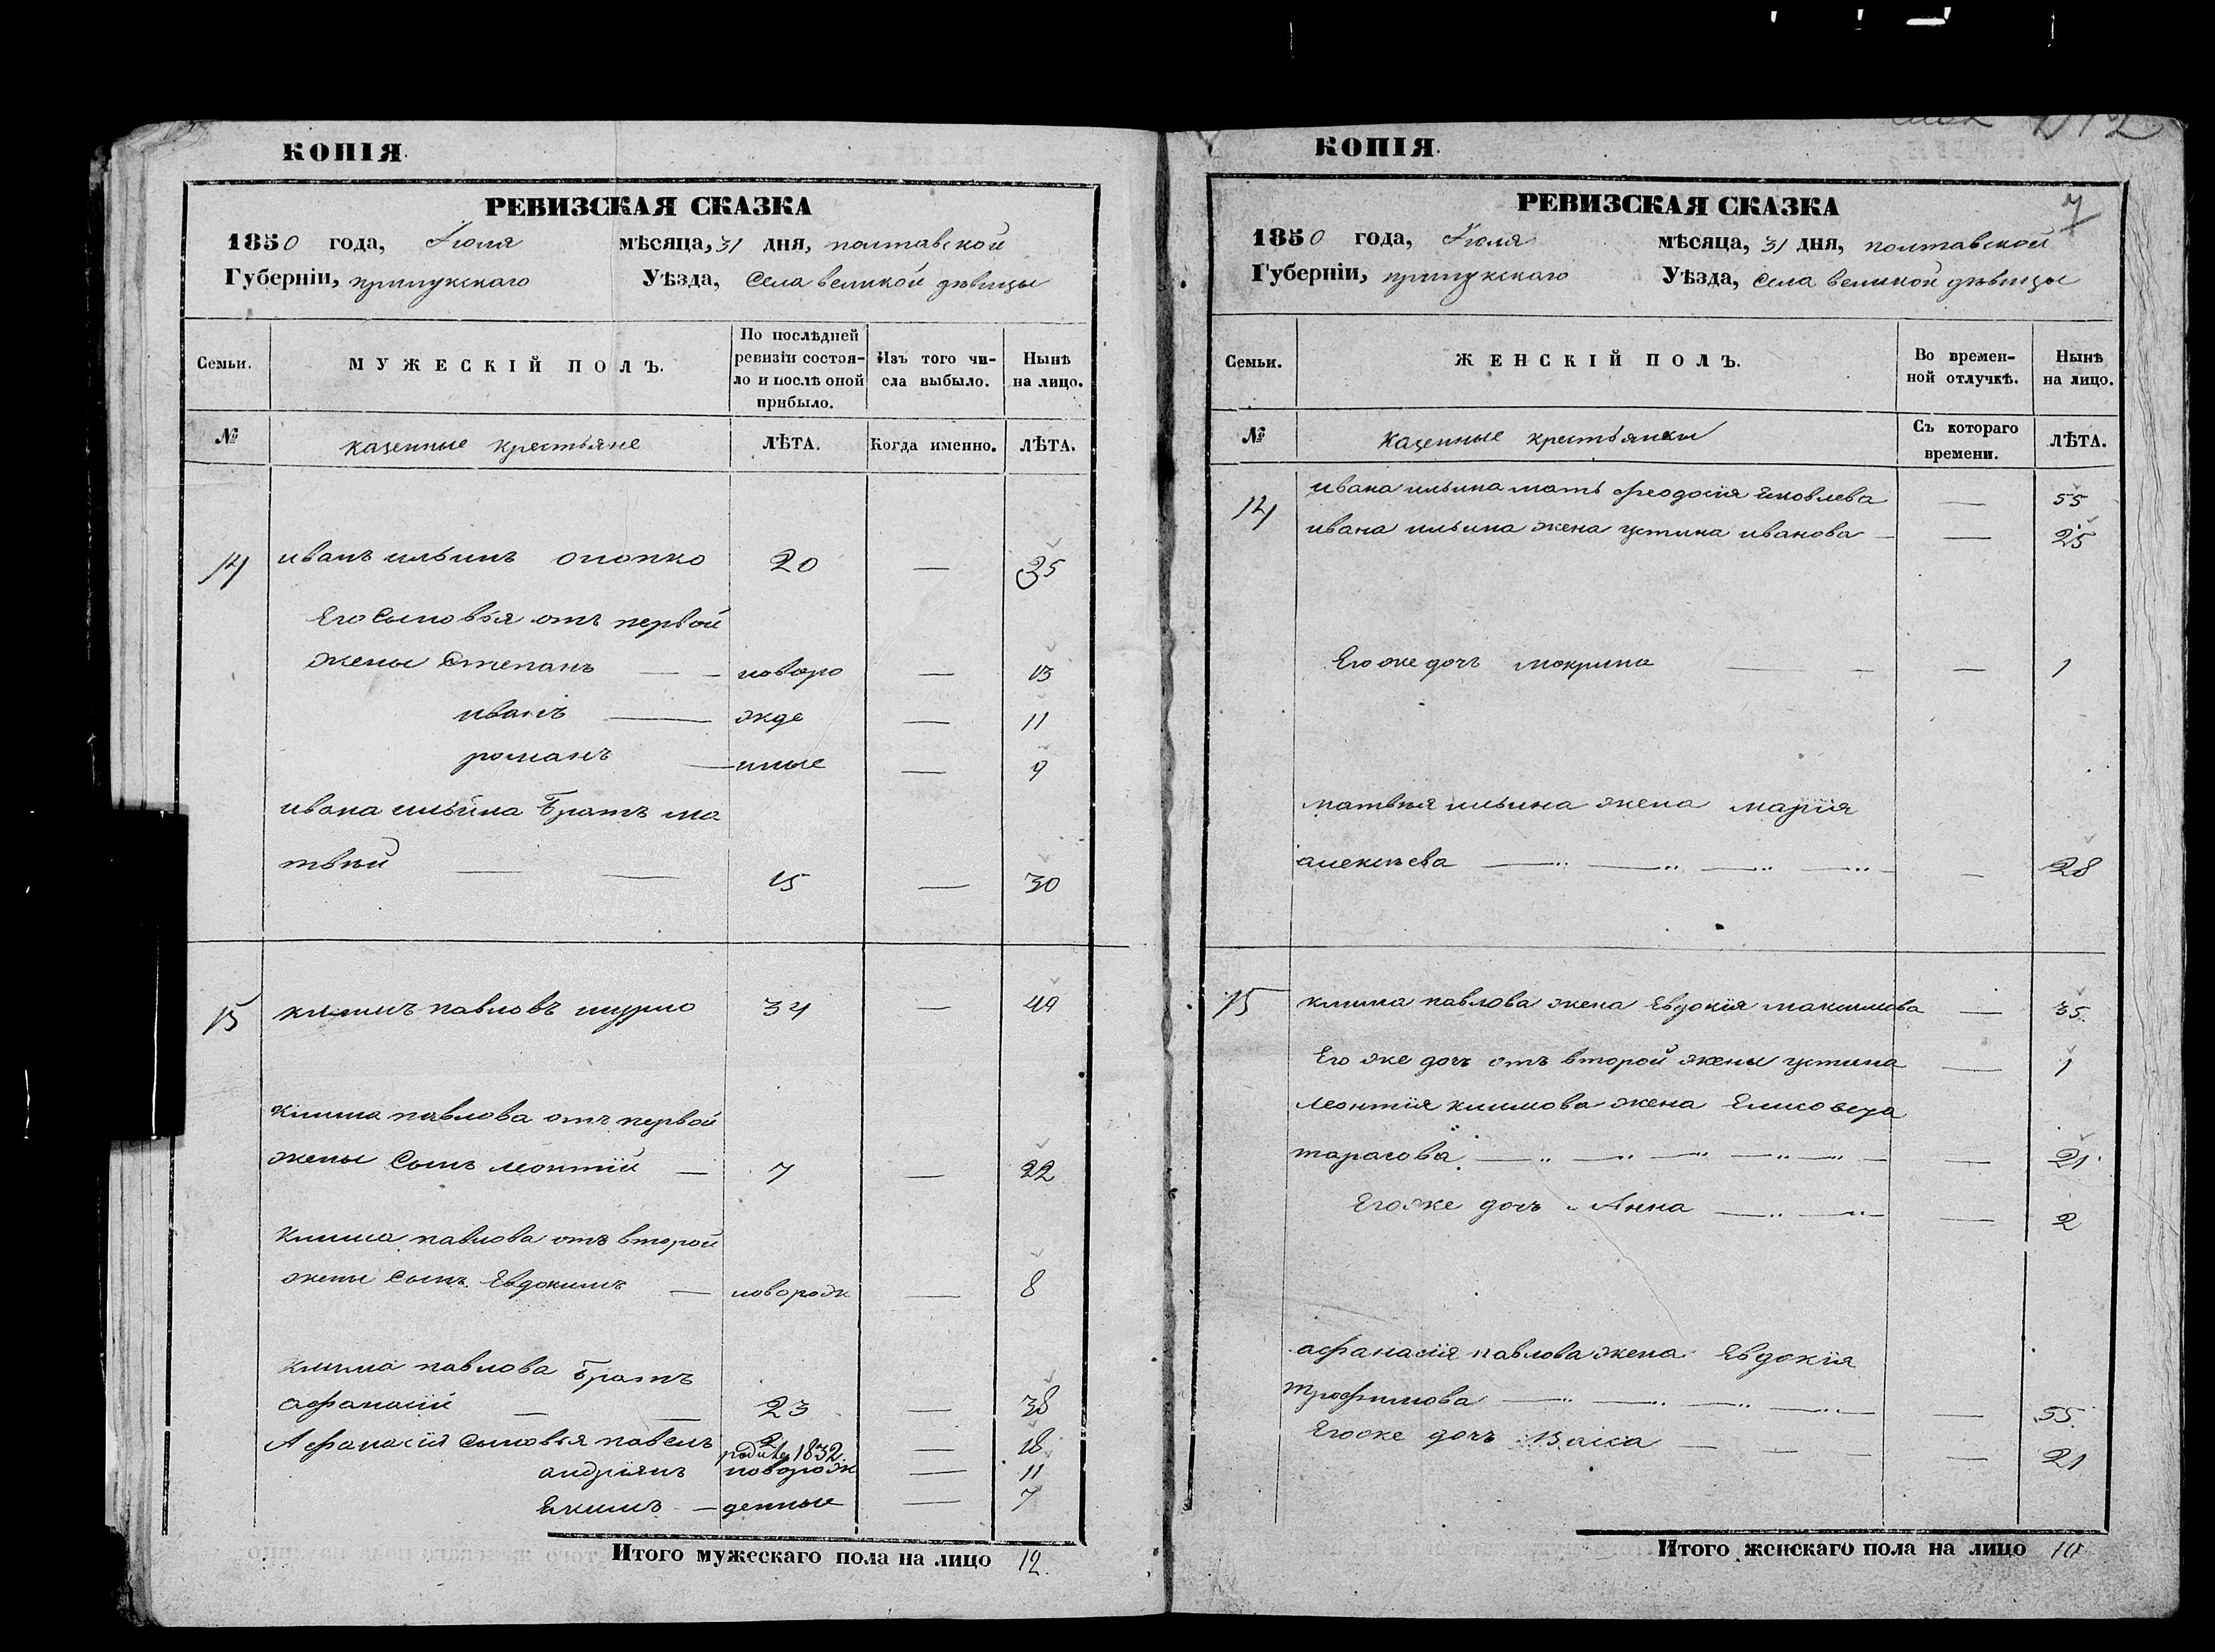 КОПІЯ.
РЕВИЗСКАЯ СКАЗКА
1850 года, Іюля мѣсяца, 31 дня, полтавской
Губерніи, прилукскаго Уѣзда, Села великой дѣвицы
Семьи.
МУЖЕСКІЙ ПОЛЪ.
По послѣдней
ревизіи состоя-
ло и послѣ оной
прибыло.
Изъ того чи-
сла выбыло.
Нынѣ
на лицо.
№ казенные крестьяне ЛѢТА. Когда именно. ЛѢТА.
14 иванъ ильинъ 20 — 35
Его сыновья отъ первой
жены Степанъ — — новоро — 13
иванъ — жде — 11
романъ — нные — 9
ивана ильина братъ ма
твѣй — — 15 — 30
15 климъ павловъ 34 — 49
клима павлова отъ первой
жены сынъ леонтій — 7 — 22
клима павлова отъ второй
жены сынъ Евдокимъ — новорож — 8
клима павлова братъ
афанасій — — 23 — 38
Афанасія сыновья павелъ 1832 — 18
андріянъ новорож — 11
Екимъ — денные — 7
Итого мужескаго пола на лицо 12.
КОПІЯ.
7
РЕВИЗСКАЯ СКАЗКА
1850 года, Іюля мѣсяца, 31 дня, полтавской
Губерніи, прилукскаго Уѣзда, Села великой дѣвицы
Семьи.
ЖЕНСКІЙ ПОЛЪ.
Во времен-
ной отлучкѣ.
Нынѣ
на лицо.
№ казенные крестьянки
Съ котораго
времени.
ЛѢТА.
14 ивана ильина мать феодосія яковлева — 55
ивана ильина жена устина иванова — — 25
Его же дочь мокрина — — — 1
матвѣя ильина жена марія
алексѣева — — — — — 28
15 клима павлова жена Евдокія максимова — 35.
Его же дочь отъ второй жены устина — 1
леонтія климова жена Елисовета
тарасова — — — — — — — 21
Его же дочь Анна — — — 2
афанасія павлова жена Евдокія
трофимова — — — — — 55.
Его же дочь Васса — — — — 21
Итого женскаго пола на лицо 10